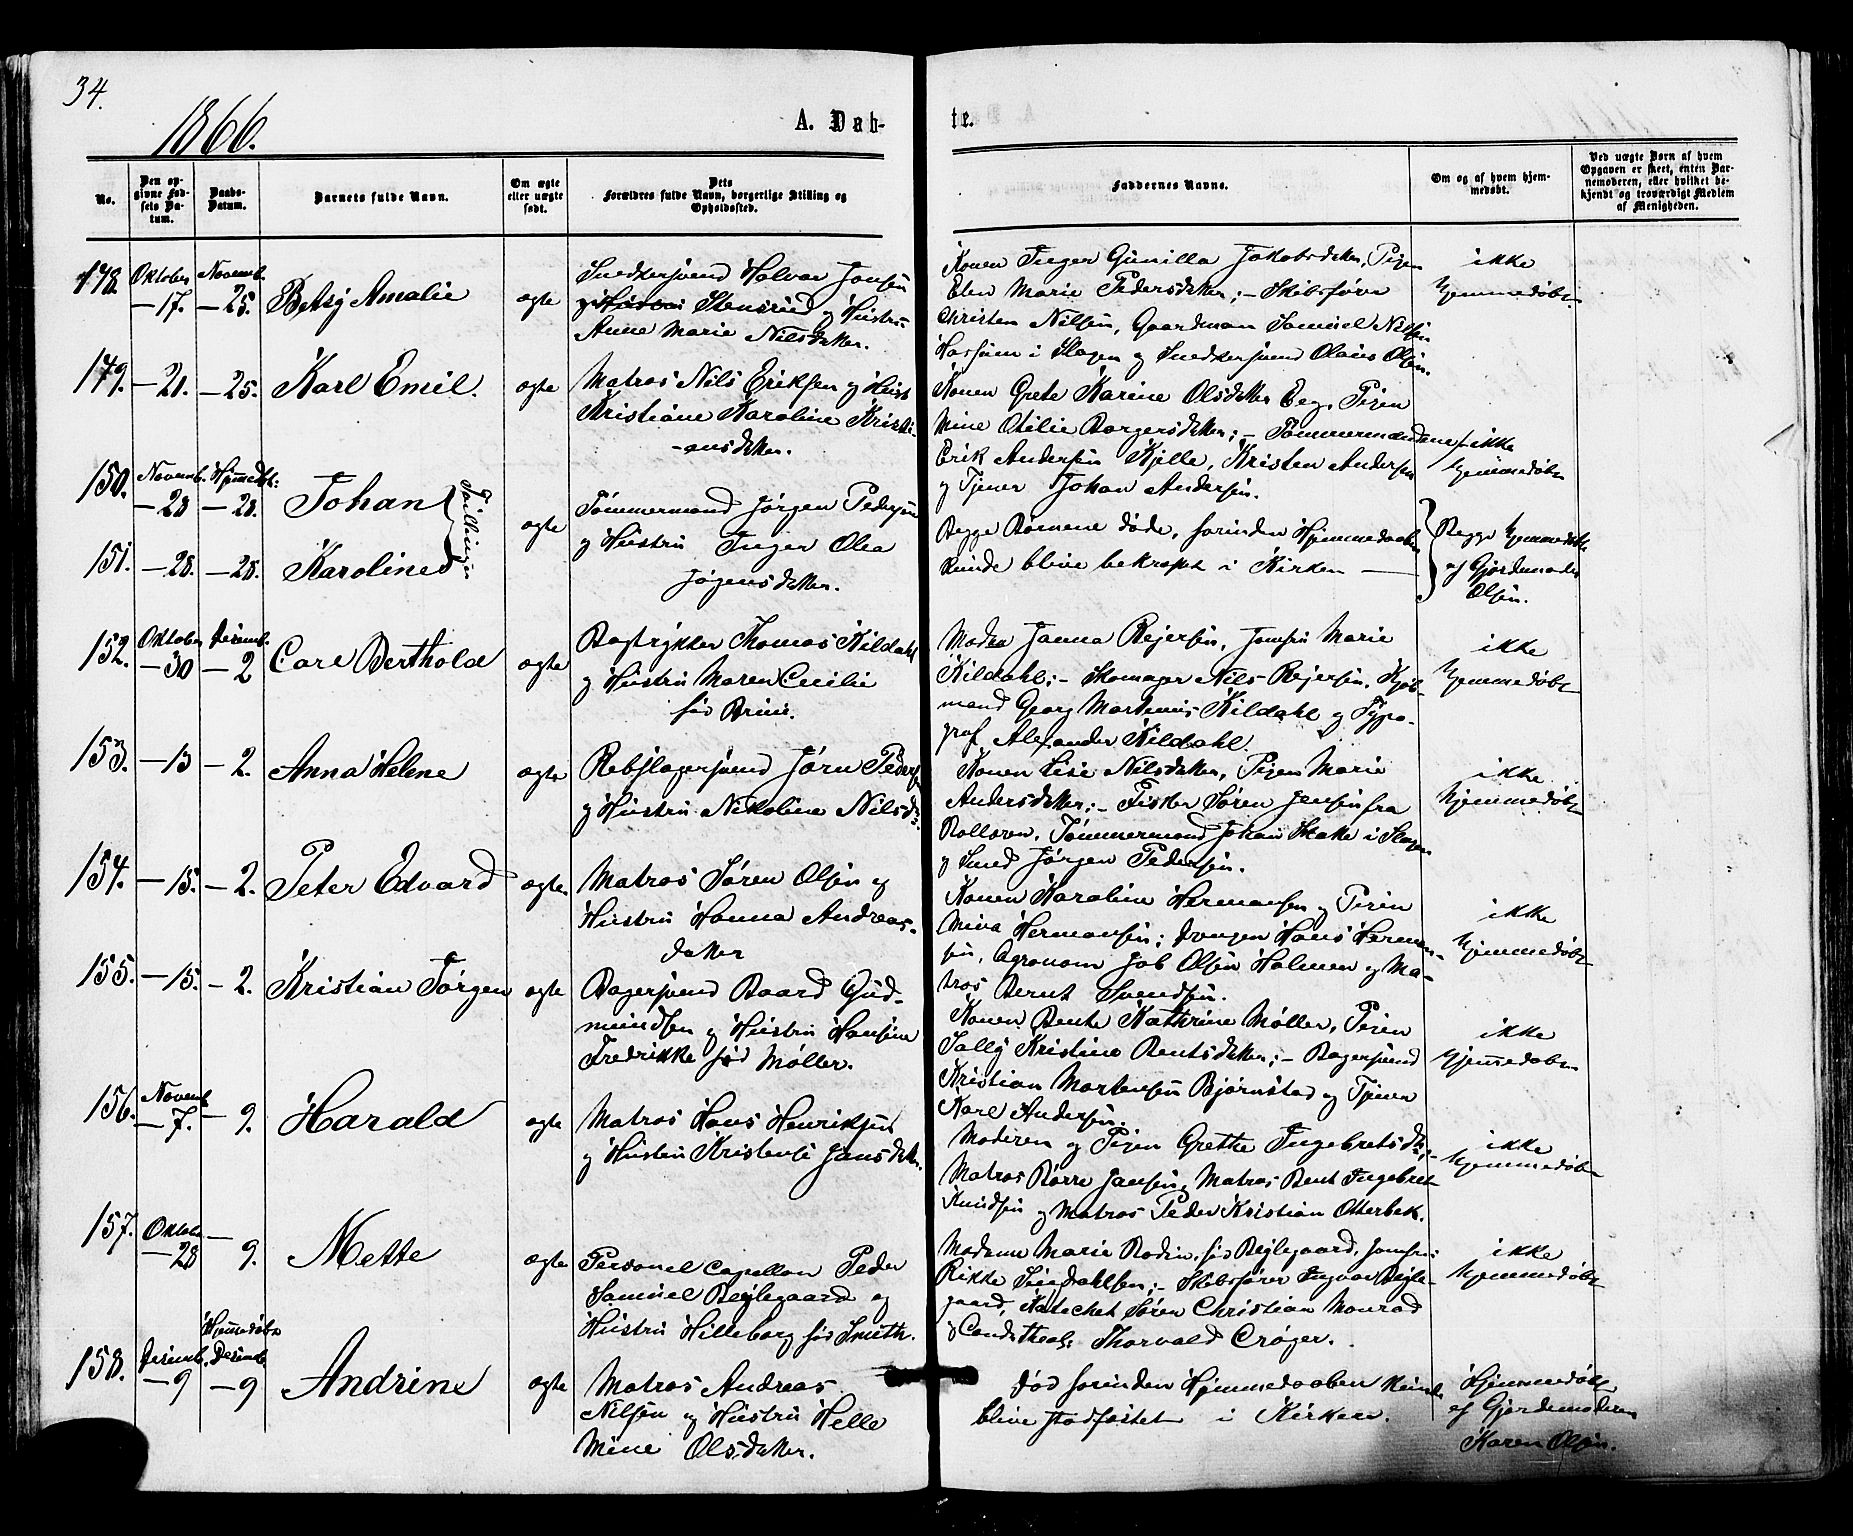 34.
1866.
A. Døb-
te.
No.
Den op-
givne Fød-
sels Da-
tum.
Daabs-
Datum.
Barnets fulde Navn.
Om ægte
eller uægte
født.
Dets
Forældres fulde Navn, borgerlige Stilling og
Opholdssted.
Faddernes Navne.
Om og af hvem hjem-
medøbt.
Ved uægte Børn af hvem
Opgaven er skeet, enten Bar-
nemoderen, eller hvilket be-
kjendt og troværdigt Medlem
af Menigheden.
148.
Oktober
— 17.
Novemb.
— 25.
Betsy Amalie
ægte
Snedkersvend Halvor Jonsen
Stensrud og Hustru
Anne Marie Nilsdatter.
Konen Inger Gunilla Jakobsdatter, Pigen
Elen Marie Pedersdatter; - Skibsfører
Christen Nilsen, Gaardman Samuel Nilsen
Hassum i Slagen og Snedkersvend Olaus Olsen.
ikke
hjemmedøbt
149.
— 21.
— 25.
Karl Emil.
ægte
Matros Nils Eriksen og Hust
Kristiane Karoline Kristi-
-ansdatter.
Konen Grete Karine Olsdatter Eeg, Pigen
Mine Otilie Borgersdatter; - Tømmermændene
Erik Andersen Kjelle, Kristen Andersen
og Tjener Johan Andersen.
ikke
hjemmedøbt
150.
Novemb.
— 28
Hjemmedøbt:
— 28.
Johan
Tvillinger
ægte
Tømmermand Jørgen Pedersen
og Hustru Inger Olea
Jørgensdatter.
Begge Børnene døde, forinden Hjemmedaaben
kunde blive bekræftet i Kirken —
Begge hjemmedøbte
af Gjordemoder
Olsen.
151.
— 28.
— 28.
Karoline
152.
Oktober
— 30
Desemb.
— 2
Carl Berthold
ægte
Bogtrykker Thomas Kildahl
og Hustru Maren Cecilie
fød Bruu.
Madm Janna Rejersen, Jomfru Marie
Kildahl; - Skomager Nils Rejersen, Kjøb-
mand Georg Martinius Kildahl og Typo-
graf Alexander Kildahl.
ikke
hjemmedøbt
153.
— 13
— 2.
Anna Helene
ægte
Rebslagersvend Jørn Peders
og Hustru Nikoline Nilsdtr.
Konen Lise Nilsdatter, Pigen Marie
Andersdatter; - Fisker Søren Jensen fra
Bolloren, Tømmermand Johan Stake i Slagen
og Smed Jørgen Pedersen.
ikke
hjemmedøbt
154.
— 15.
— 2.
Peter Edvard
ægte
Matros Søren Olsen og
Hustru Hanna Andreas-
datter
Konen Karoline Hermansen og Pigen
Mina Hermansen; Drengen Hans Herman-
sen, Agronom Job Olsen Holmen og Ma-
tros Bernt Svendsen.
ikke
hjemmedøbt
155.
— 15.
— 2.
Kristian Jørgen
ægte
Bagersvend Baard Gud-
mundsen og Hustru Hansine
Fredrikke fød Møller.
Konen Bente Kathrine Møller, Pigen
Sally Kristine Bentsdatter; - Bagersvend
Kristian Mortensen Bjørnstad og Tjener
Karl Andersen.
ikke
hjemmedøbt
156.
Novemb
— 7.
— 9.
Harald
ægte
Matros Hans Henriksen
og Hustru Kristense Jansdatter.
Moderen og Pigen Grethe Ingebretsdtr;
Matros Børre Jansen, Matros Bent Ingebret
Knudsen og Matros Peder Kristian Otterbek.
ikke
hjemmedøbt
157.
Oktober
— 28
—
9.
Mette
ægte
Personel Capellan Peder
Samuel Bejlegaard og
Hustru Hilleborg fød Smith.
Madame Marie Rodin, fød Bejlegaard, Jomfru
Rikke Lindahlsen; - Skibsfører Ingvar Bejle-
gaard, Katechet Søren Christian Monrad
& Cand. theol: Thorvald Crøger.
ikke
hjemmedøbt
158.
Desemb.
— 9
Hjemmedøbt
Desemb.
— 9
Andrine
ægte
Matros Andreas
Nilsen og Hustru Helle
Mine Olsdatter.
Død forinden Hjemmedaaben kunde
blive stadfæstet i Kirken.
Hjemmedøbt
af Gjordemoderen
Karen Olsen.